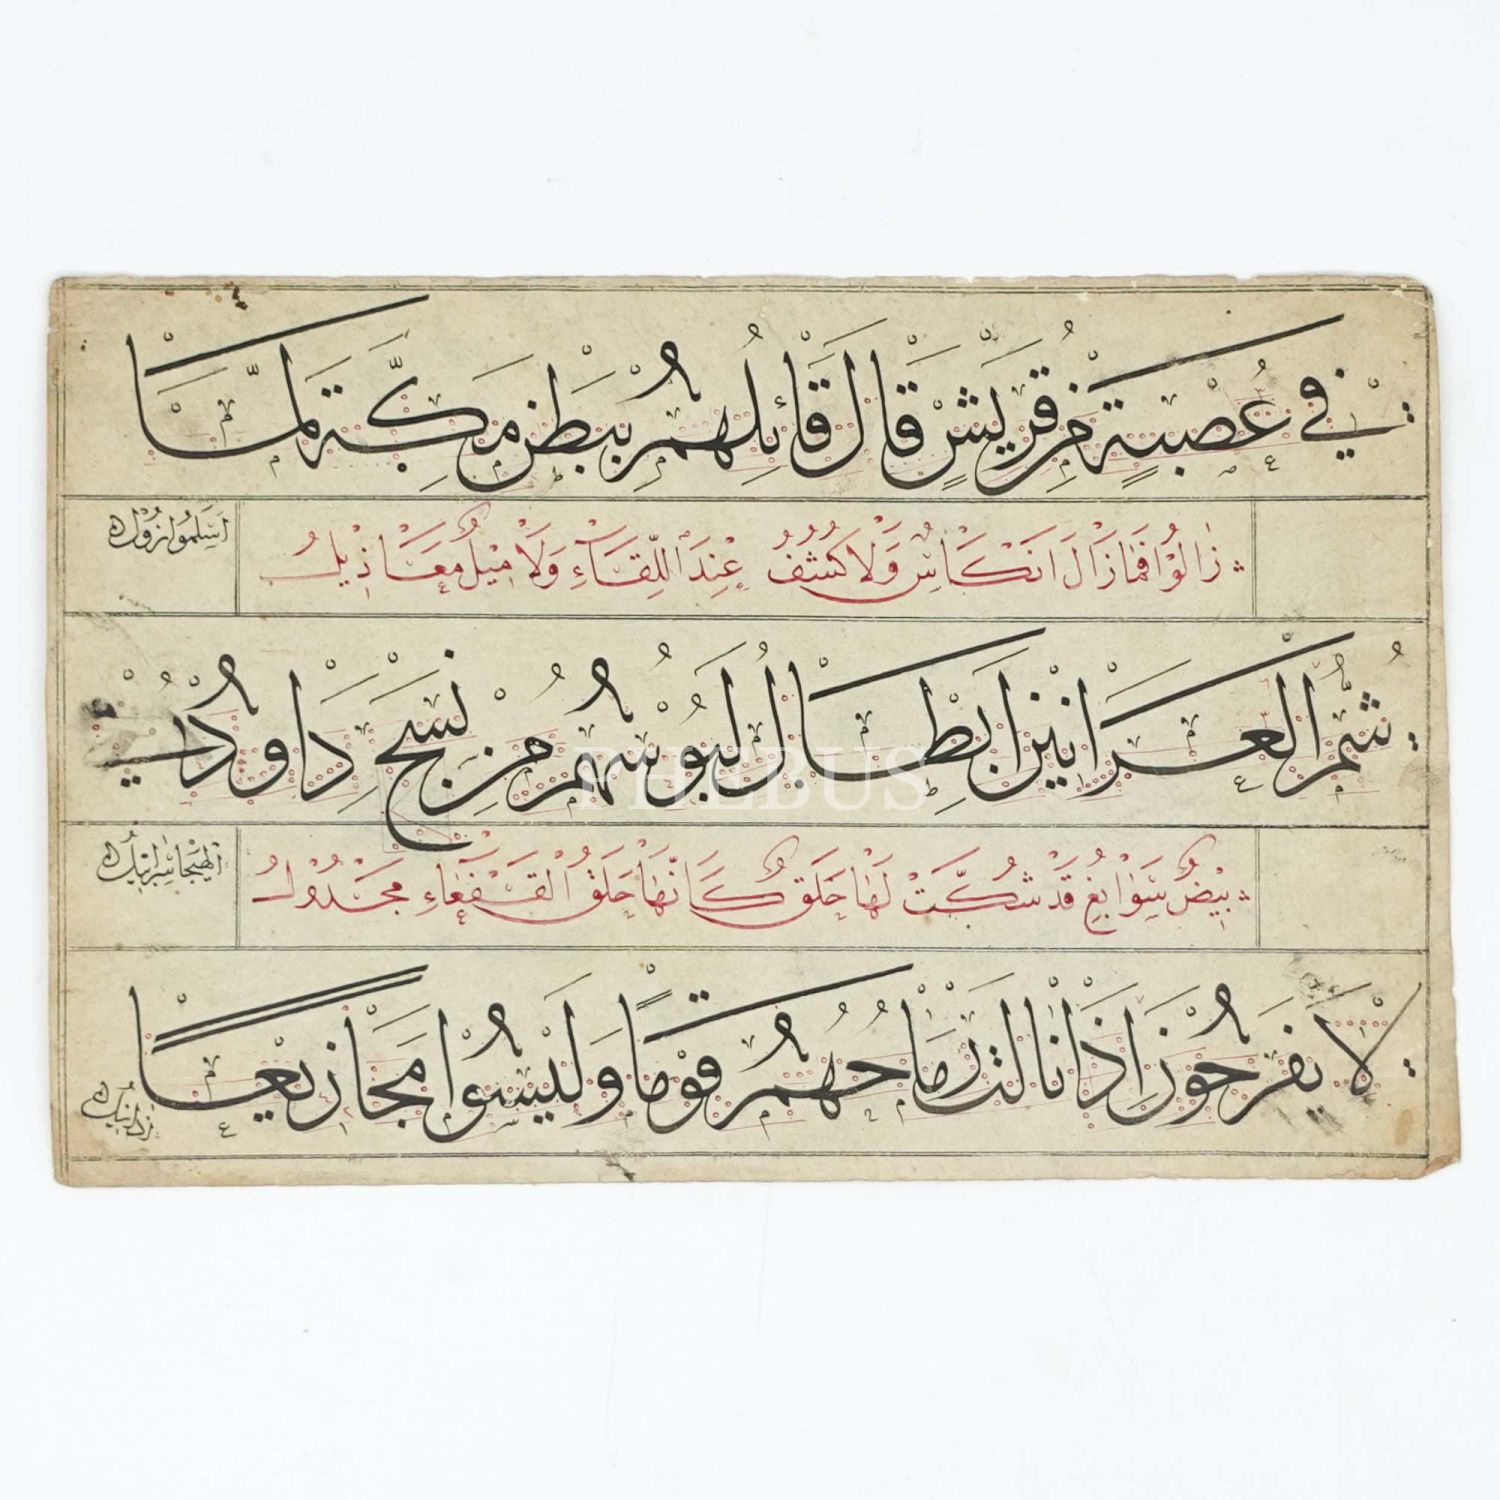 في عُصْبَةٍ مِنْ قُرَيْشٍ قَالَ قَائِلُهُمْ بِبَطْنِ مَكَّةَ لَمَّا
أَسْلَمُوا زُولُوا
زَالُوا فَمَا زَالَ أَنْكَاسٌ وَلَا كُشُفٌ عِنْدَ اللِّقَاءِ وَلَا مِيلٌ مَعَازِيلُ
شُمُّ الْعَرَانِينِ أَبْطَالٌ لَبُوسُهُمْ مِنْ نَسْجِ دَاوُدَ في
الْهَيْجَا سَرَابِيلُ
بِيضٌ سَوَابِغُ قَدْ شُكَّتْ لَهَا حَلَقٌ كَأَنَّهَا حَلَقُ الْقَفْعَاءِ مَجْدُولُ
لَا يَفْرَحُونَ إِذَا نَالَتْ رِمَاحُهُمُ قَوْمًا وَلَيْسُوا مَجَازِيعًا
PHEBUS